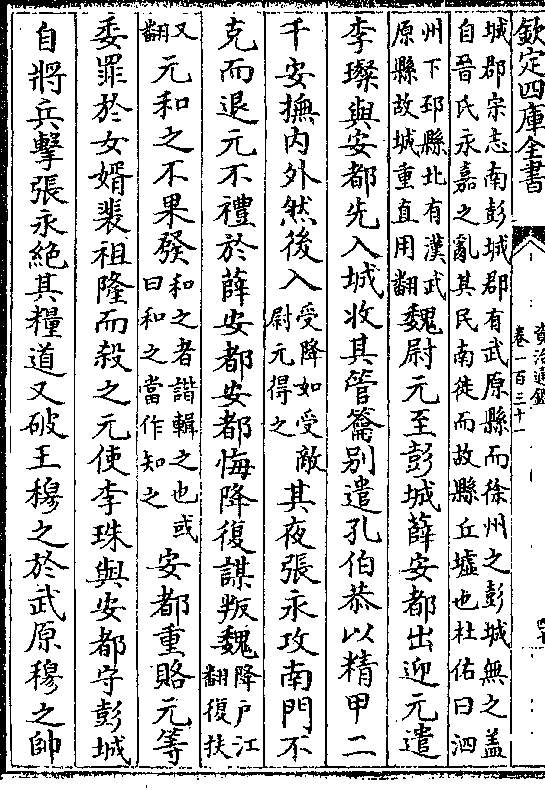 欽定四庫全書
資治通鑑
卷一百三十一
城郡宗志南彭城郡有武原縣而徐州之彭城無之蓋
自晉氏永嘉之亂其民南徙而故縣丘墟也杜佑曰泗
州下邳縣北有漢武
原縣故城重直用翻魏尉元至彭城薛安都出迎元遣
李璨與安都先入城收其管籥别遣孔伯恭以精甲二
千安撫内外然後入受降如受敵
尉元得之其夜張永攻南門不
克而退元不禮於薛安都安都悔降復謀叛魏降户江
翻復扶
又
翻元和之不果發和之者諧輯之也或
曰和之當作知之安都重賂元等
委罪於女婿裴祖隆而殺之元使李珠與安都守彭城
自將兵擊張永絶其糧道又破王穆之於武原穆之帥